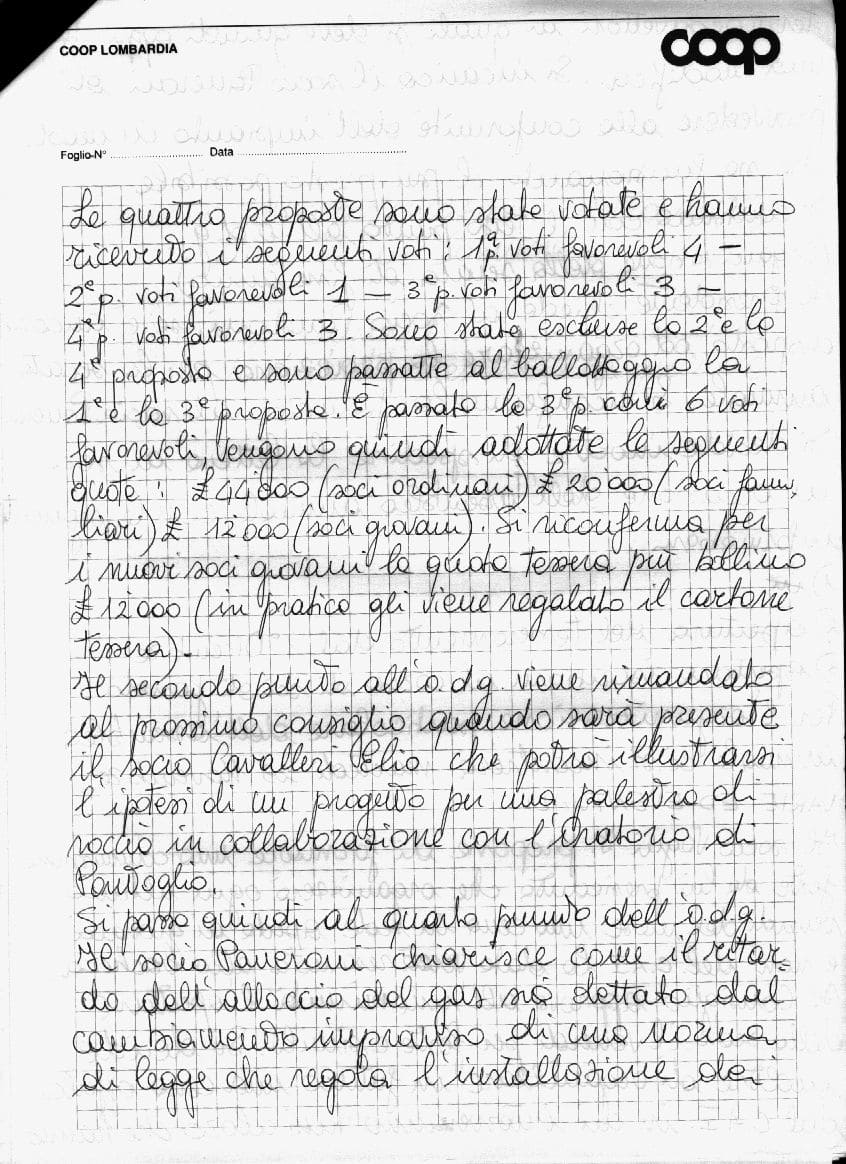 COOP LOMBARDIA
coop
Foglio-N° ........................ Data ............................................
Le quattro proposte sono state votate e hanno
ricevuto i seguenti voti: 1ª p. voti favorevoli 4 –
2ª p. voti favorevoli 1 – 3ª p. voti favorevoli 3 –
4ª p. voti favorevoli 3. Sono state escluse la 2ª e la
4ª proposta e sono passatte al ballottaggio la
1ª e la 3ª proposta. È passata la 3ª p. con 6 voti
favorevoli, vengono quindi adottate le seguenti
quote: £ 44'000 (soci ordinari) £ 20'000 (soci fami,
liari) £ 12'000 (soci giovani). Si riconferma per
i nuovi soci giovani la quota tessera più bollino
£ 12'000 (in pratica gli viene regalato il cartone
tessera).
Il secondo punto all'o.d.g. viene rimandato
al prossimo consiglio quando sarà presente
il socio Cavalleri Elio che potrà illustrarsi
l'ipotesi di un progetto per una palestra di
roccia in collaborazione con l'Oratorio di
Pontoglio.
Si passa quindi al quarto punto dell'o.d.g.
Il socio Paneroni chiarisce come il ritar-
do dell'allaccio del gas sia dettato dal
cambiamento improvviso di una norma
di legge che regola l'installazione dei